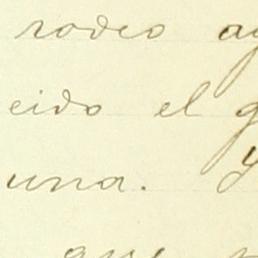 rodeo
cido el
una. y
que